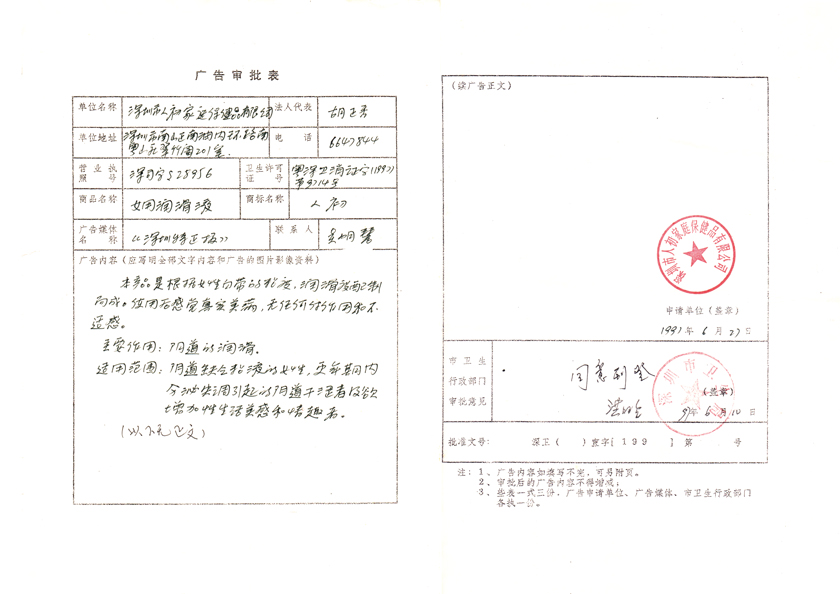 广告审批表
单位名称 深圳市人初家庭保健品有限公司 法人代表 胡正秀
单位地址 深圳市南山区南湖内环路南 电话 6647844
粤山花翠竹阁201室.
营业执照号 深司字S28956 卫生许可证号 粤深卫消证字(1997)
第9714号
商品名称 女用润滑液 商标名称 人初
广告媒体名称 《深圳特区报》 联系人
广告内容(应写明全部文字内容和广告的图片影像资料)
本产品是根据女性白带的粘度,润滑活配制
而成。使用后感觉真实美满,无任何付作用和不
适感。
主要作用:阴道的润滑。
适用范围:阴道缺乏粘液的女性,更年期内
分泌失调引起的阴道干涩者及欲
增加性生活美感和情趣者。
(以下无正文)
(续广告正文)
深圳市人初家庭保健品有限公司
申请单位(签章)
1997年6月27日
市卫生
行政部门
审批意见
同意刊登
深圳市卫
(签章)
97年6月10日
批准文号: 深卫( )宣字[199 ]第 号
注:1、广告内容如填写不完,可另附页。
2、审批后的广告内容不得增减;
3、些表一式三份,广告申请单位、广告媒体、市卫生行政部门
各执一份。